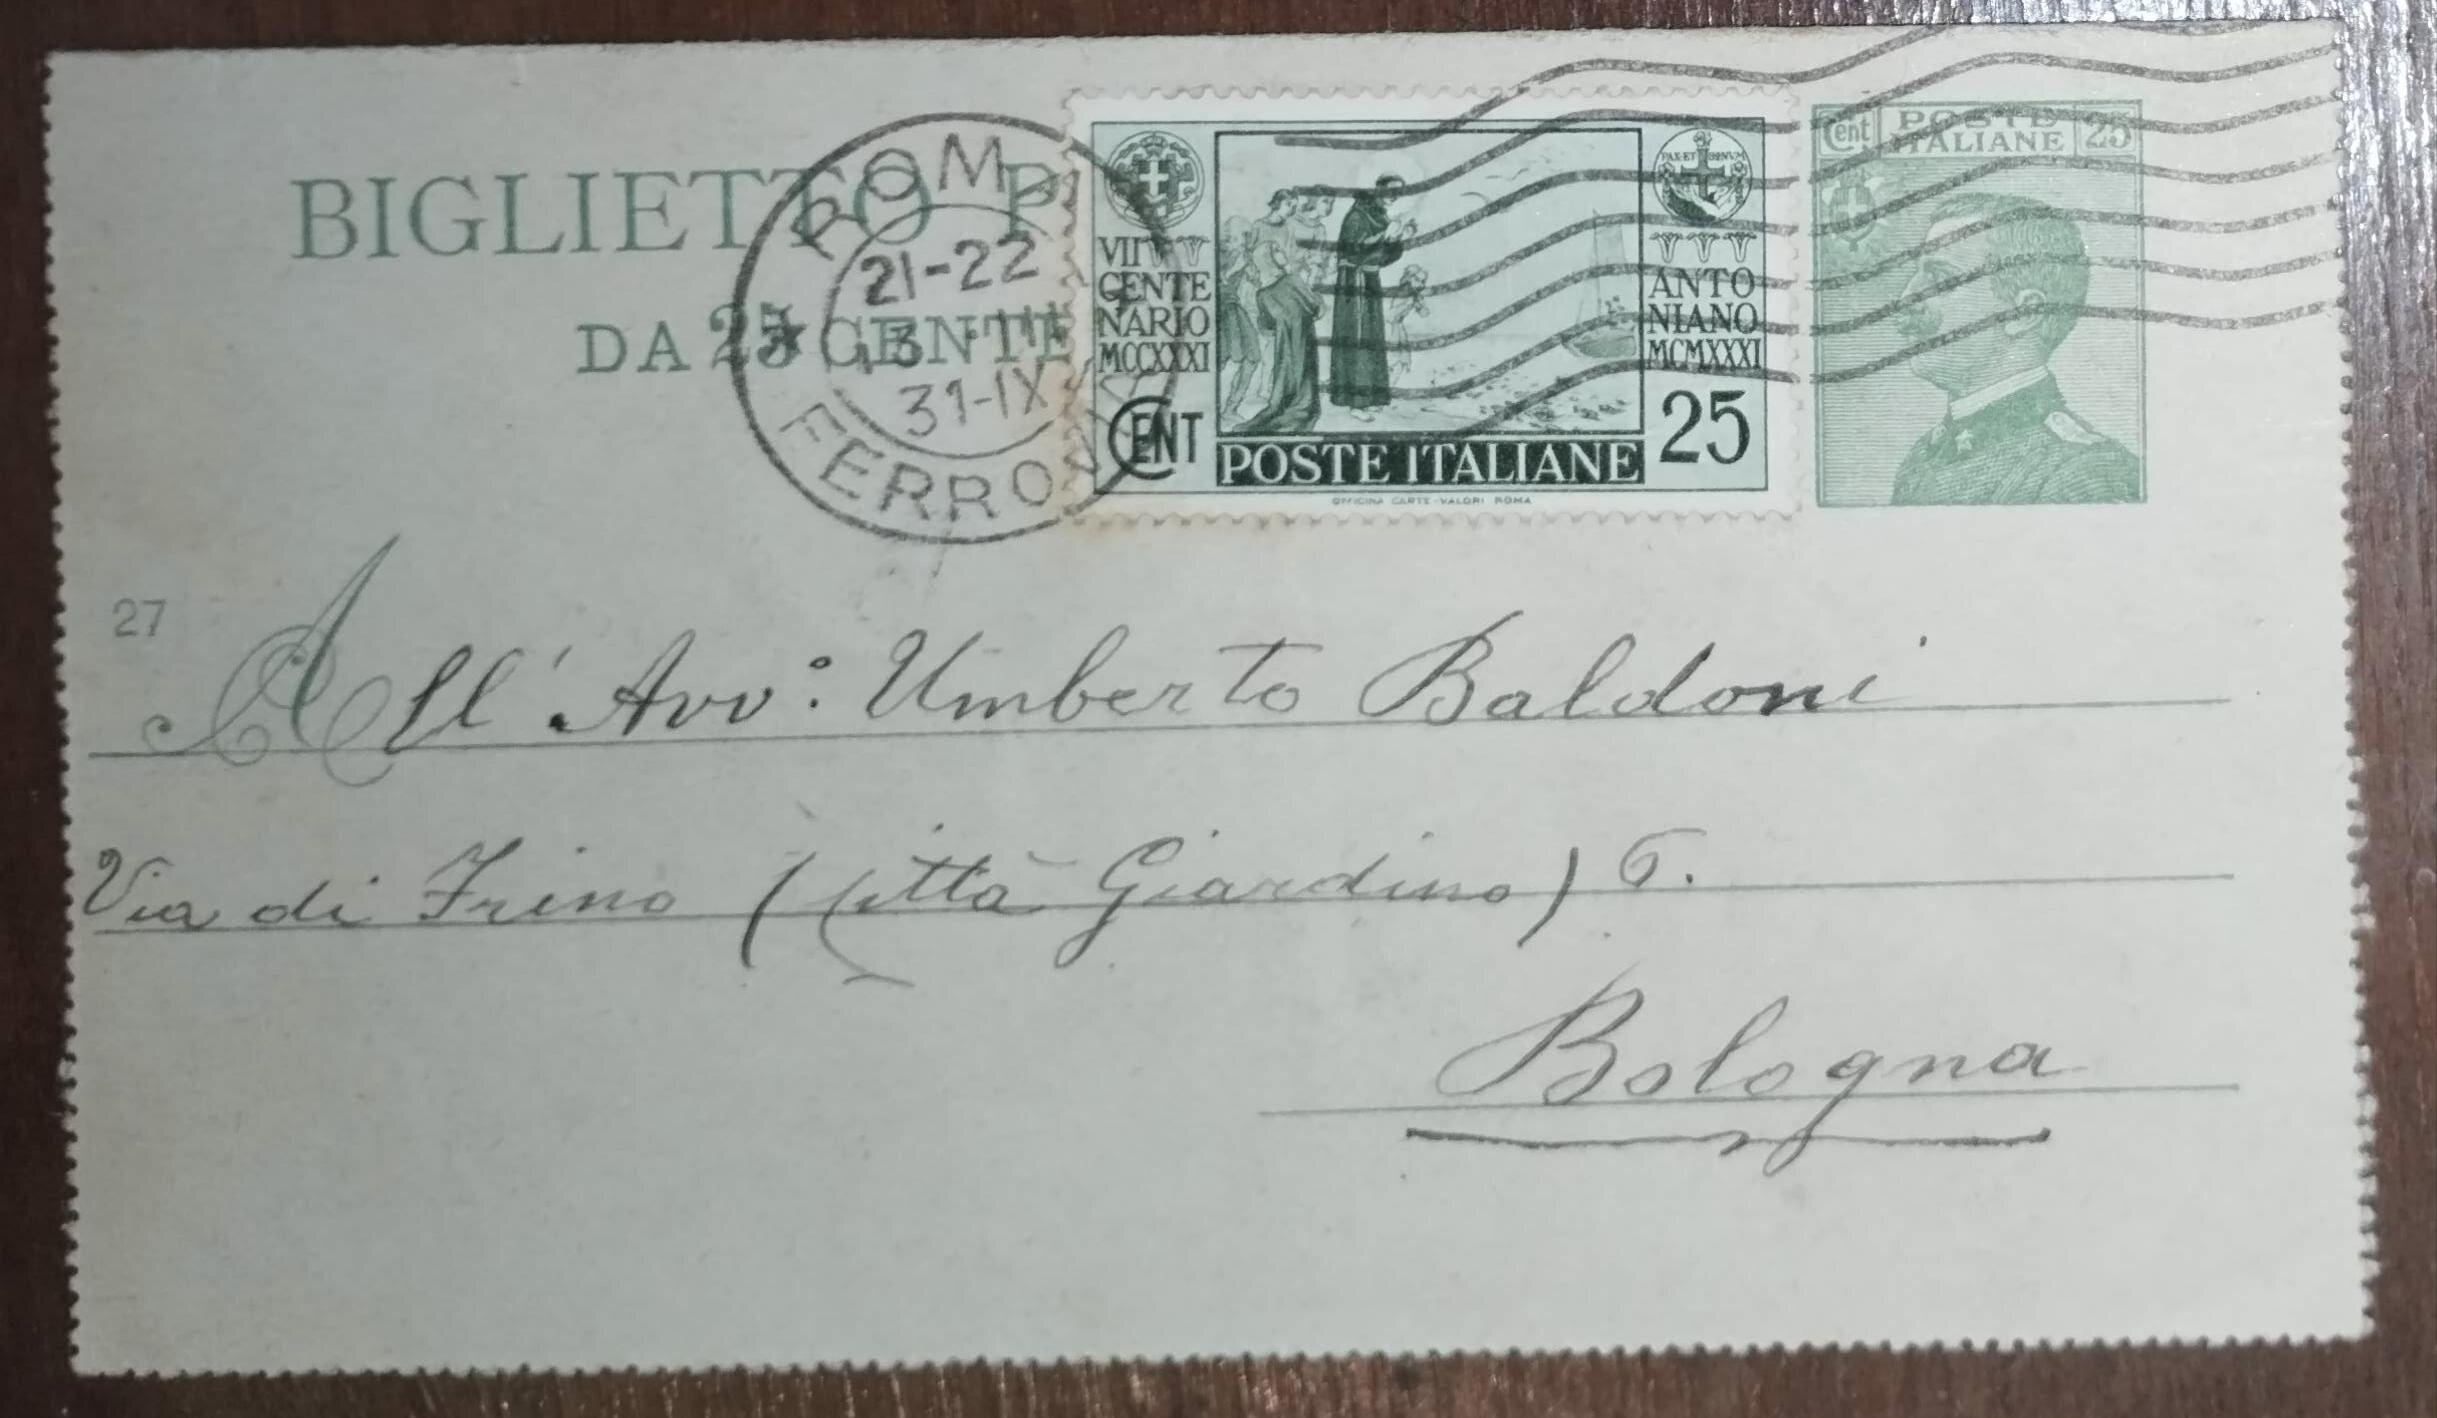 BIGLIETTO P
DA 25 CENTE
ROMA
21-22
31-IX
FERROVIA
VII
CENTE
NARIO
MCCXXXI
CENT
PAX ET BONVM
ANTO
NIANO
MCMXXXI
25
POSTE ITALIANE
OFFICINA CARTE-VALORI ROMA
Cent POSTE ITALIANE 25
27
All' Avv: Umberto Baldoni
Via di Frino (Città Giardino) 6.
Bologna